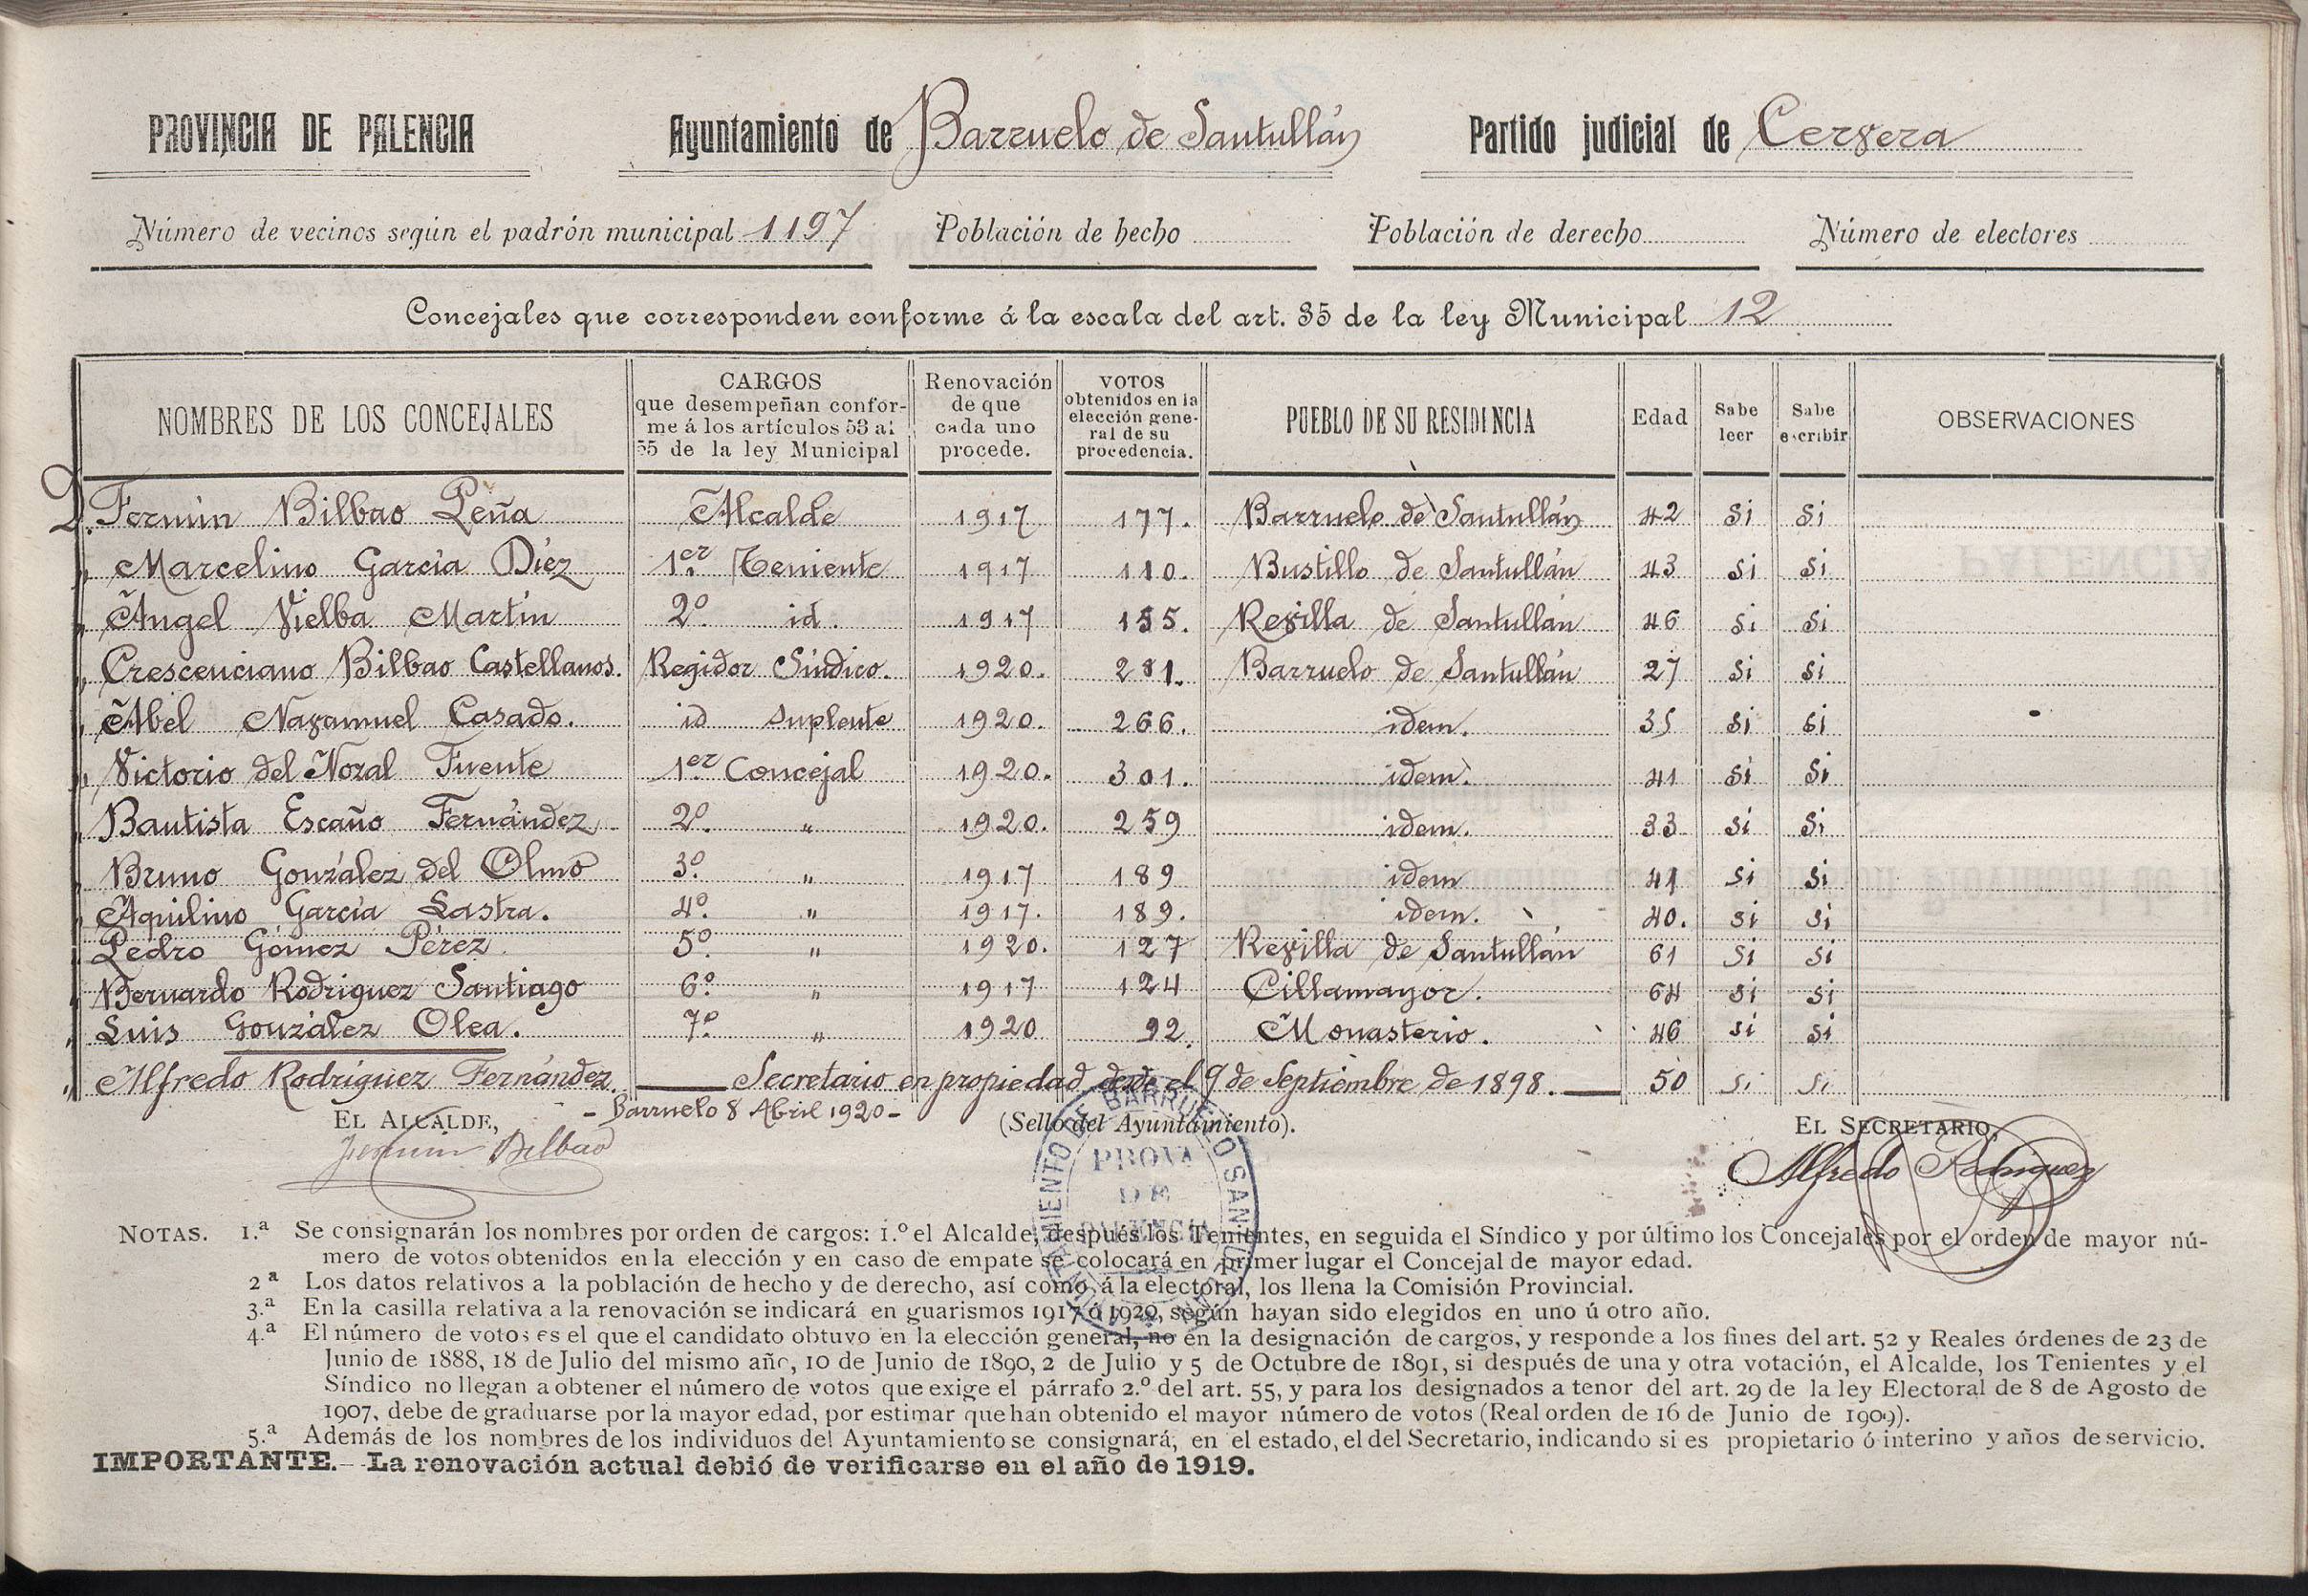 PROVINCIA DE PALENCIA Ayuntamiento de Barruelo de Santullán Partido judicial de Cervera
Número de vecinos según el padrón municipal 1197 Población de hecho Población de derecho Número de electores
Concejales que corresponden conforme á la escala del art. 35 de la ley Municipal 12
NOMBRES DE LOS CONCEJALES
CARGOS
que desempeñan confor-
me á los artículos 53 al
55 de la ley Municipal
Renovación
de que
cada uno
procede.
VOTOS
obtenidos en la
elección gene-
ral de su
procedencia.
PUEBLO DE SU RESIDENCIA
Edad
Sabe
leer
Sabe
escribir
OBSERVACIONES
D. Fermín Bilbao Peña Alcalde 1917 177. Barruelo de Santullán 42 Si Si
" Marcelino García Díez 1er. Teniente 1917 110. Bustillo de Santullán 43 Si Si
" Ángel Vielba Martín 2º. id. 1917 155. Revilla de Santullán 46 Si Si
" Crescenciano Bilbao Castellanos. Regidor Síndico. 1920. 281. Barruelo de Santullán 27 Si Si
" Abel Navamuel Casado. id Suplente 1920. 266. idem. 35 Si Si
" Victorio del Nozal Fuente 1er Concejal 1920. 301. idem. 41 Si Si
" Bautista Escaño Fernández 2º. " 1920. 259 idem. 33 Si Si
" Bruno González del Olmo 3º. " 1917 189 idem 41 Si Si
" Aquilino García Lastra. 4º. " 1917. 189. idem. 40. Si Si
" Pedro Gómez Pérez. 5º. " 1920. 127 Revilla de Santullán 61 Si Si
" Bernardo Rodríguez Santiago 6º. " 1917 124 Cillamayor. 64 Si Si
" Luis González Olea. 7º. " 1920 92. Monasterio. 46 Si Si
" Alfredo Rodríguez Fernández. Secretario en propiedad desde el 9 de Septiembre de 1898. 50 Si Si
EL ALCALDE, - Barruelo 8 Abril 1920 - (Sello del Ayuntamiento). EL SECRETARIO,
Fermín Bilbao
Alfredo Rodríguez
AYUNTAMIENTO DE BARRUELO SANTULLAN
PROVA
DE
PALENCIA
NOTAS. 1.ª Se consignarán los nombres por orden de cargos: 1.º el Alcalde, después los Tenientes, en seguida el Síndico y por último los Concejales por el orden de mayor nú-
mero de votos obtenidos en la elección y en caso de empate se colocará en primer lugar el Concejal de mayor edad.
2ª Los datos relativos a la población de hecho y de derecho, así como á la electoral, los llena la Comisión Provincial.
3.ª En la casilla relativa a la renovación se indicará en guarismos 1917 ó 1920, según hayan sido elegidos en uno ú otro año.
4.ª El número de votos es el que el candidato obtuvo en la elección general, no en la designación de cargos, y responde a los fines del art. 52 y Reales órdenes de 23 de
Junio de 1888, 18 de Julio del mismo año, 10 de Junio de 1890, 2 de Julio y 5 de Octubre de 1891, si después de una y otra votación, el Alcalde, los Tenientes y el
Síndico no llegan a obtener el número de votos que exige el párrafo 2.º del art. 55, y para los designados a tenor del art. 29 de la ley Electoral de 8 de Agosto de
1907, debe de graduarse por la mayor edad, por estimar que han obtenido el mayor número de votos (Real orden de 16 de Junio de 1909).
5.ª Además de los nombres de los individuos del Ayuntamiento se consignará, en el estado, el del Secretario, indicando si es propietario ó interino y años de servicio.
IMPORTANTE.—La renovación actual debió de verificarse en el año de 1919.